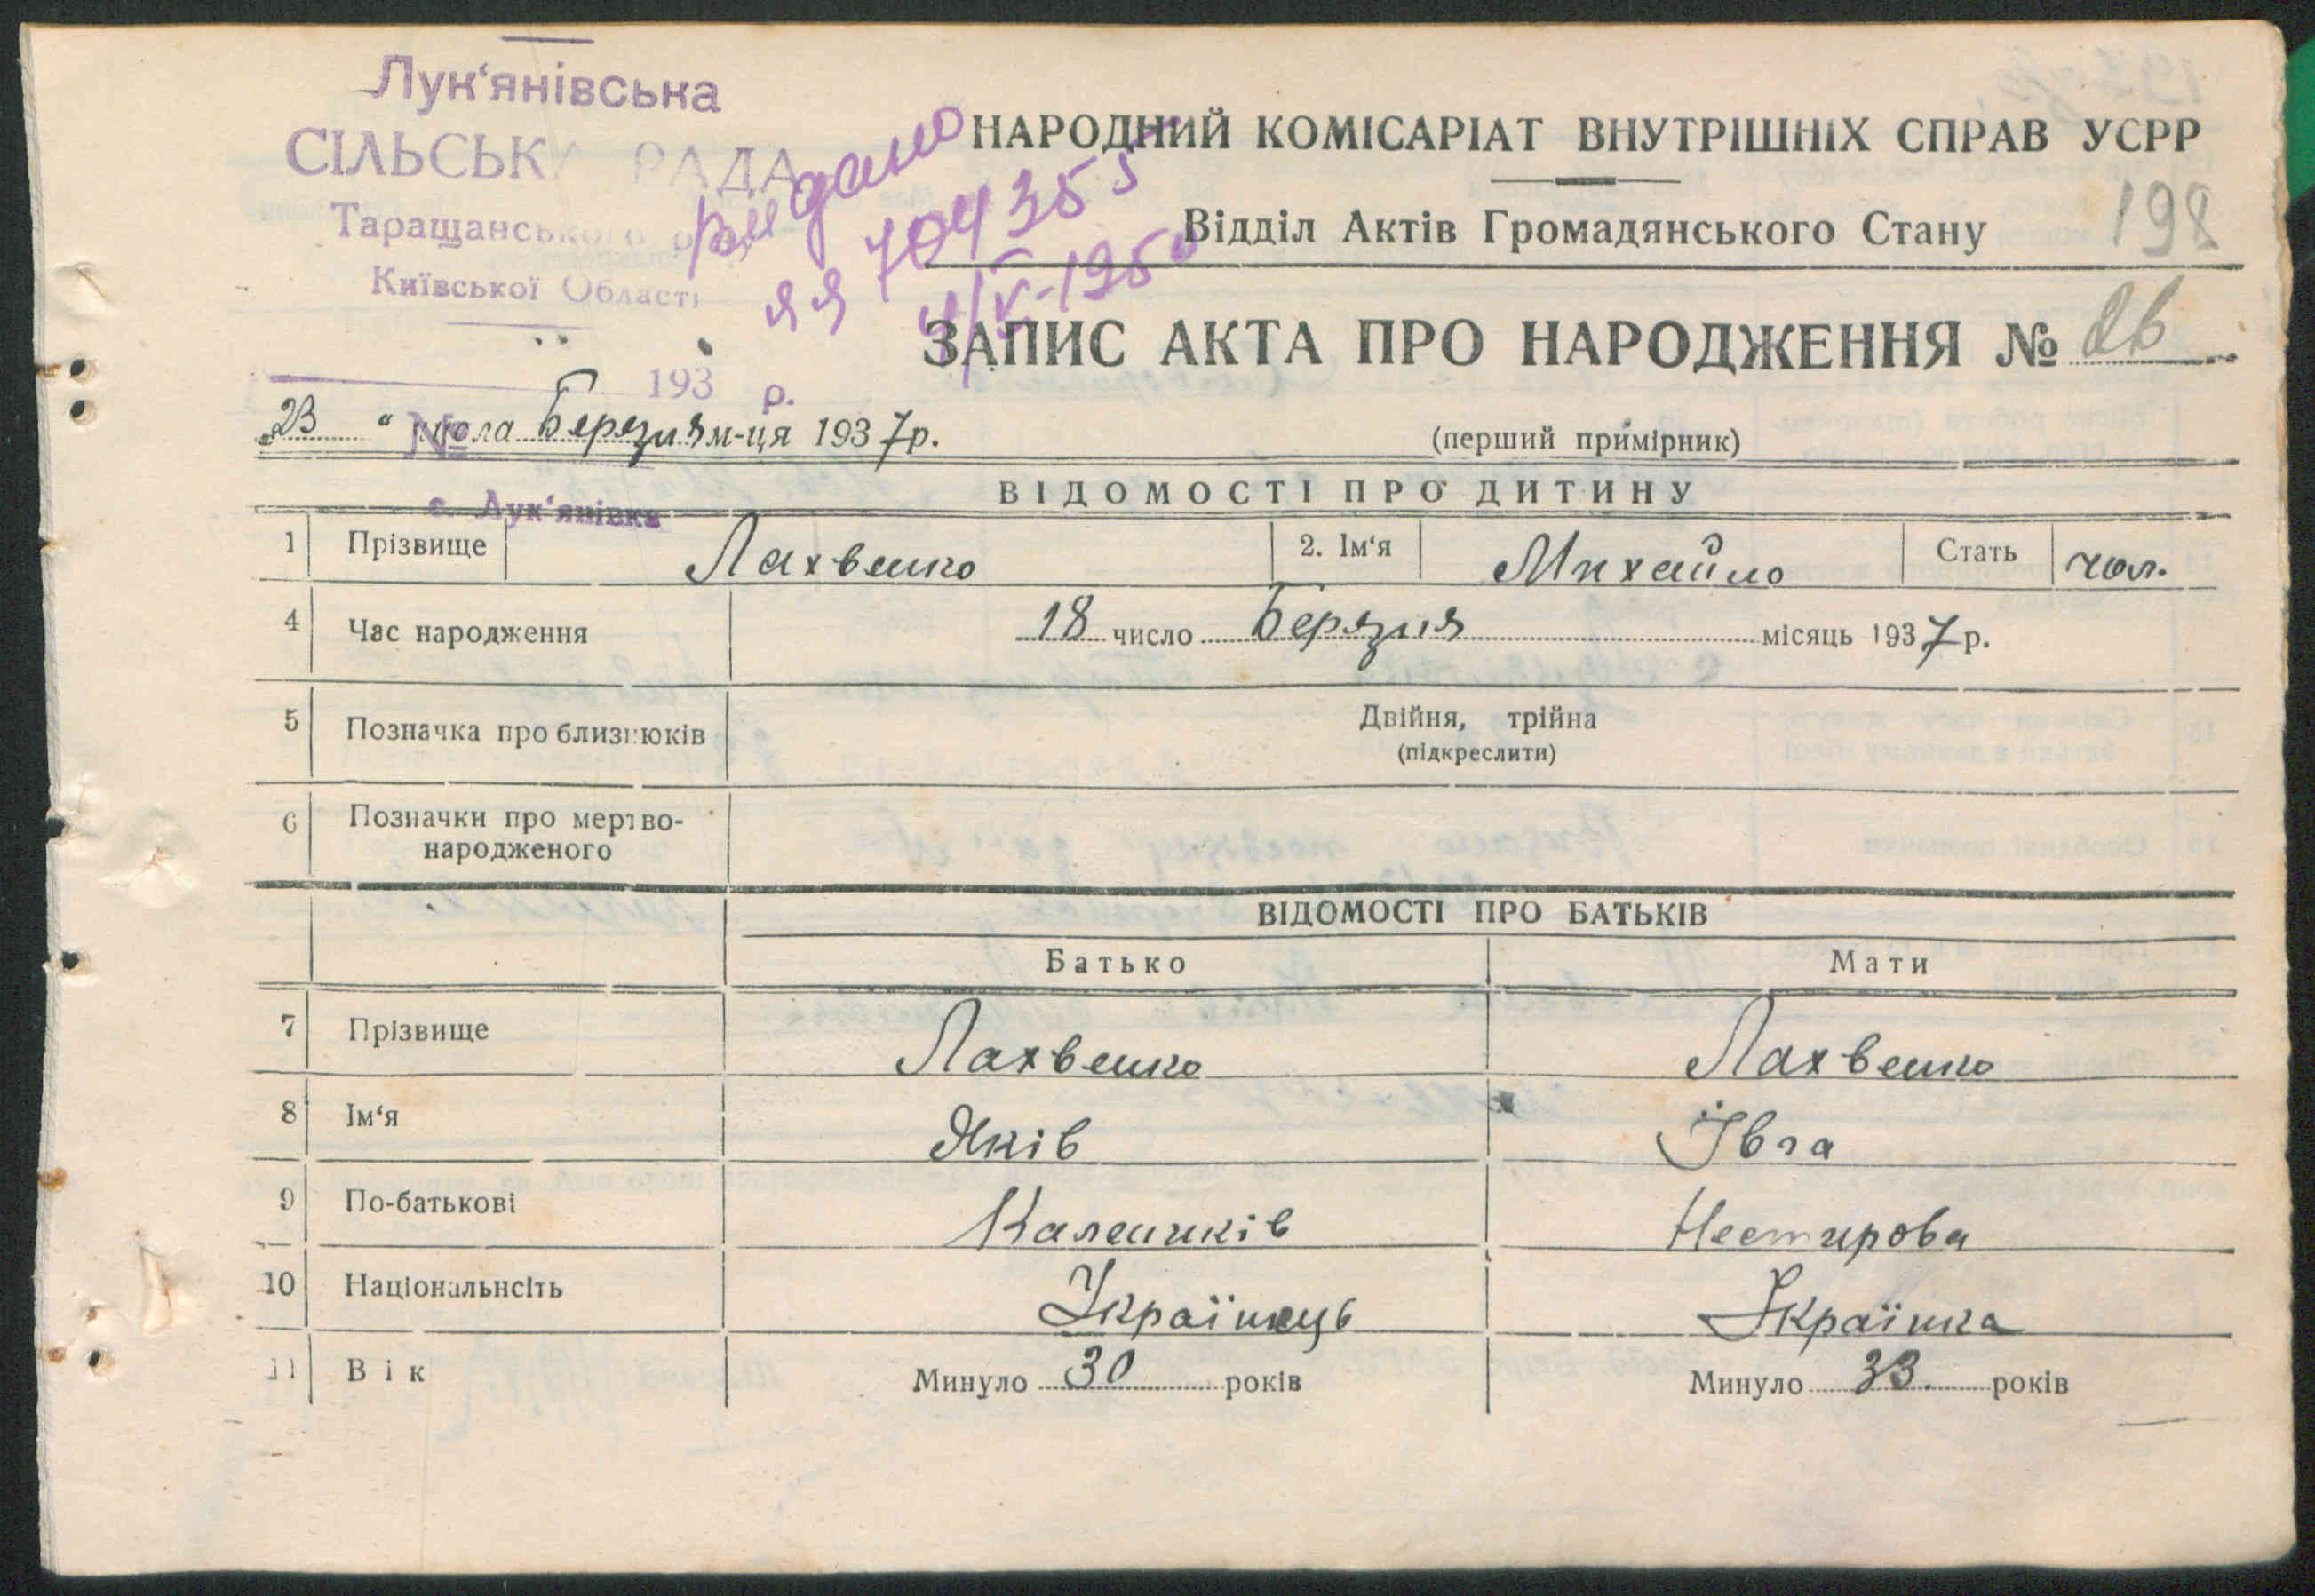 Лук‘янівська
СІЛЬСЬКА РАДА
Таращанського р-ну
Київської Області
193 р.
№
с. Лук‘янівка
видано
ЯЯ 704355
4/V-1950
НАРОДНИЙ КОМІСАРІАТ ВНУТРІШНІХ СПРАВ УСРР
Відділ Актів Громадянського Стану
198
ЗАПИС АКТА ПРО НАРОДЖЕННЯ № 26
„23“ числа Березня м-ця 1937р.
(перший примірник)
ВІДОМОСТІ ПРО ДИТИНУ
1 Прізвище Лахвенко 2. Ім‘я Михайло Стать чол.
4 Час народження 18 число Березня місяць 1937р.
5 Позначка про близнюків Двійня, трійна
(підкреслити)
6 Позначки про мертво-
народженого
ВІДОМОСТІ ПРО БАТЬКІВ
Батько Мати
7 Прізвище Лахвенко Лахвенко
8 Ім‘я Яків Івга
9 По-батькові Калеників Нестирова
10 Національнсіть Українець Українка
11 Вік Минуло 30 років Минуло 33. років